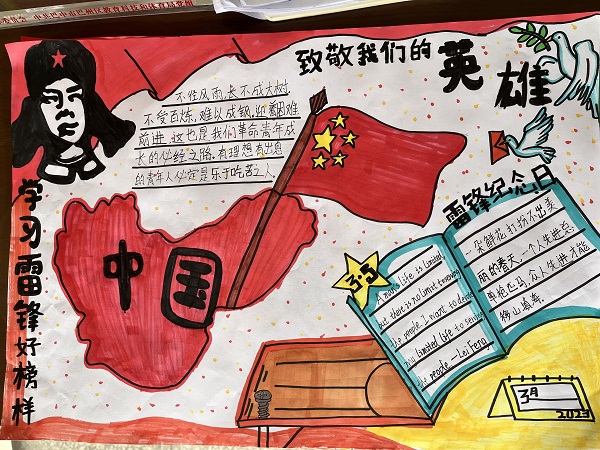 中共巴中市巴州区教育科技和体育局党组
致敬我们的英雄
不经风雨,长不成大树,
不受百炼,难以成钢,迎着困难
前进,这也是我们革命青年成
长的必经之路.有理想有出息
的青年人必定是乐于吃苦之人.
学习雷锋好榜样
中国
雷锋纪念日
3.5
A man's life is limited
but there is no limit to serving
the people. I want to devote
my limited life to serving
the people —Lei Feng
一朵鲜花打扮不出美
丽的春天,一个人先进总
单枪匹马,众人先进才能
移山填海.
3月
2023